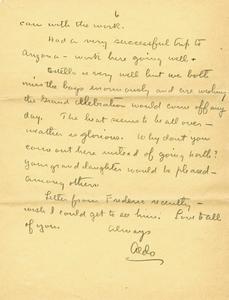 6
care with the work.
Had a very successful trip to
Arizona - work here going well &
Estella is very well but we both
miss the boys enormously and are wishing
the Grand Celebration would come off any
day. The heat seems to be all over -
weather is glorious. Why don't you
come out here instead of going north?
your grand daughter would be pleased -
among others.
Letter from Frederic recently -
wish I could get to see him. Love to all
of you.
Always
Aldo